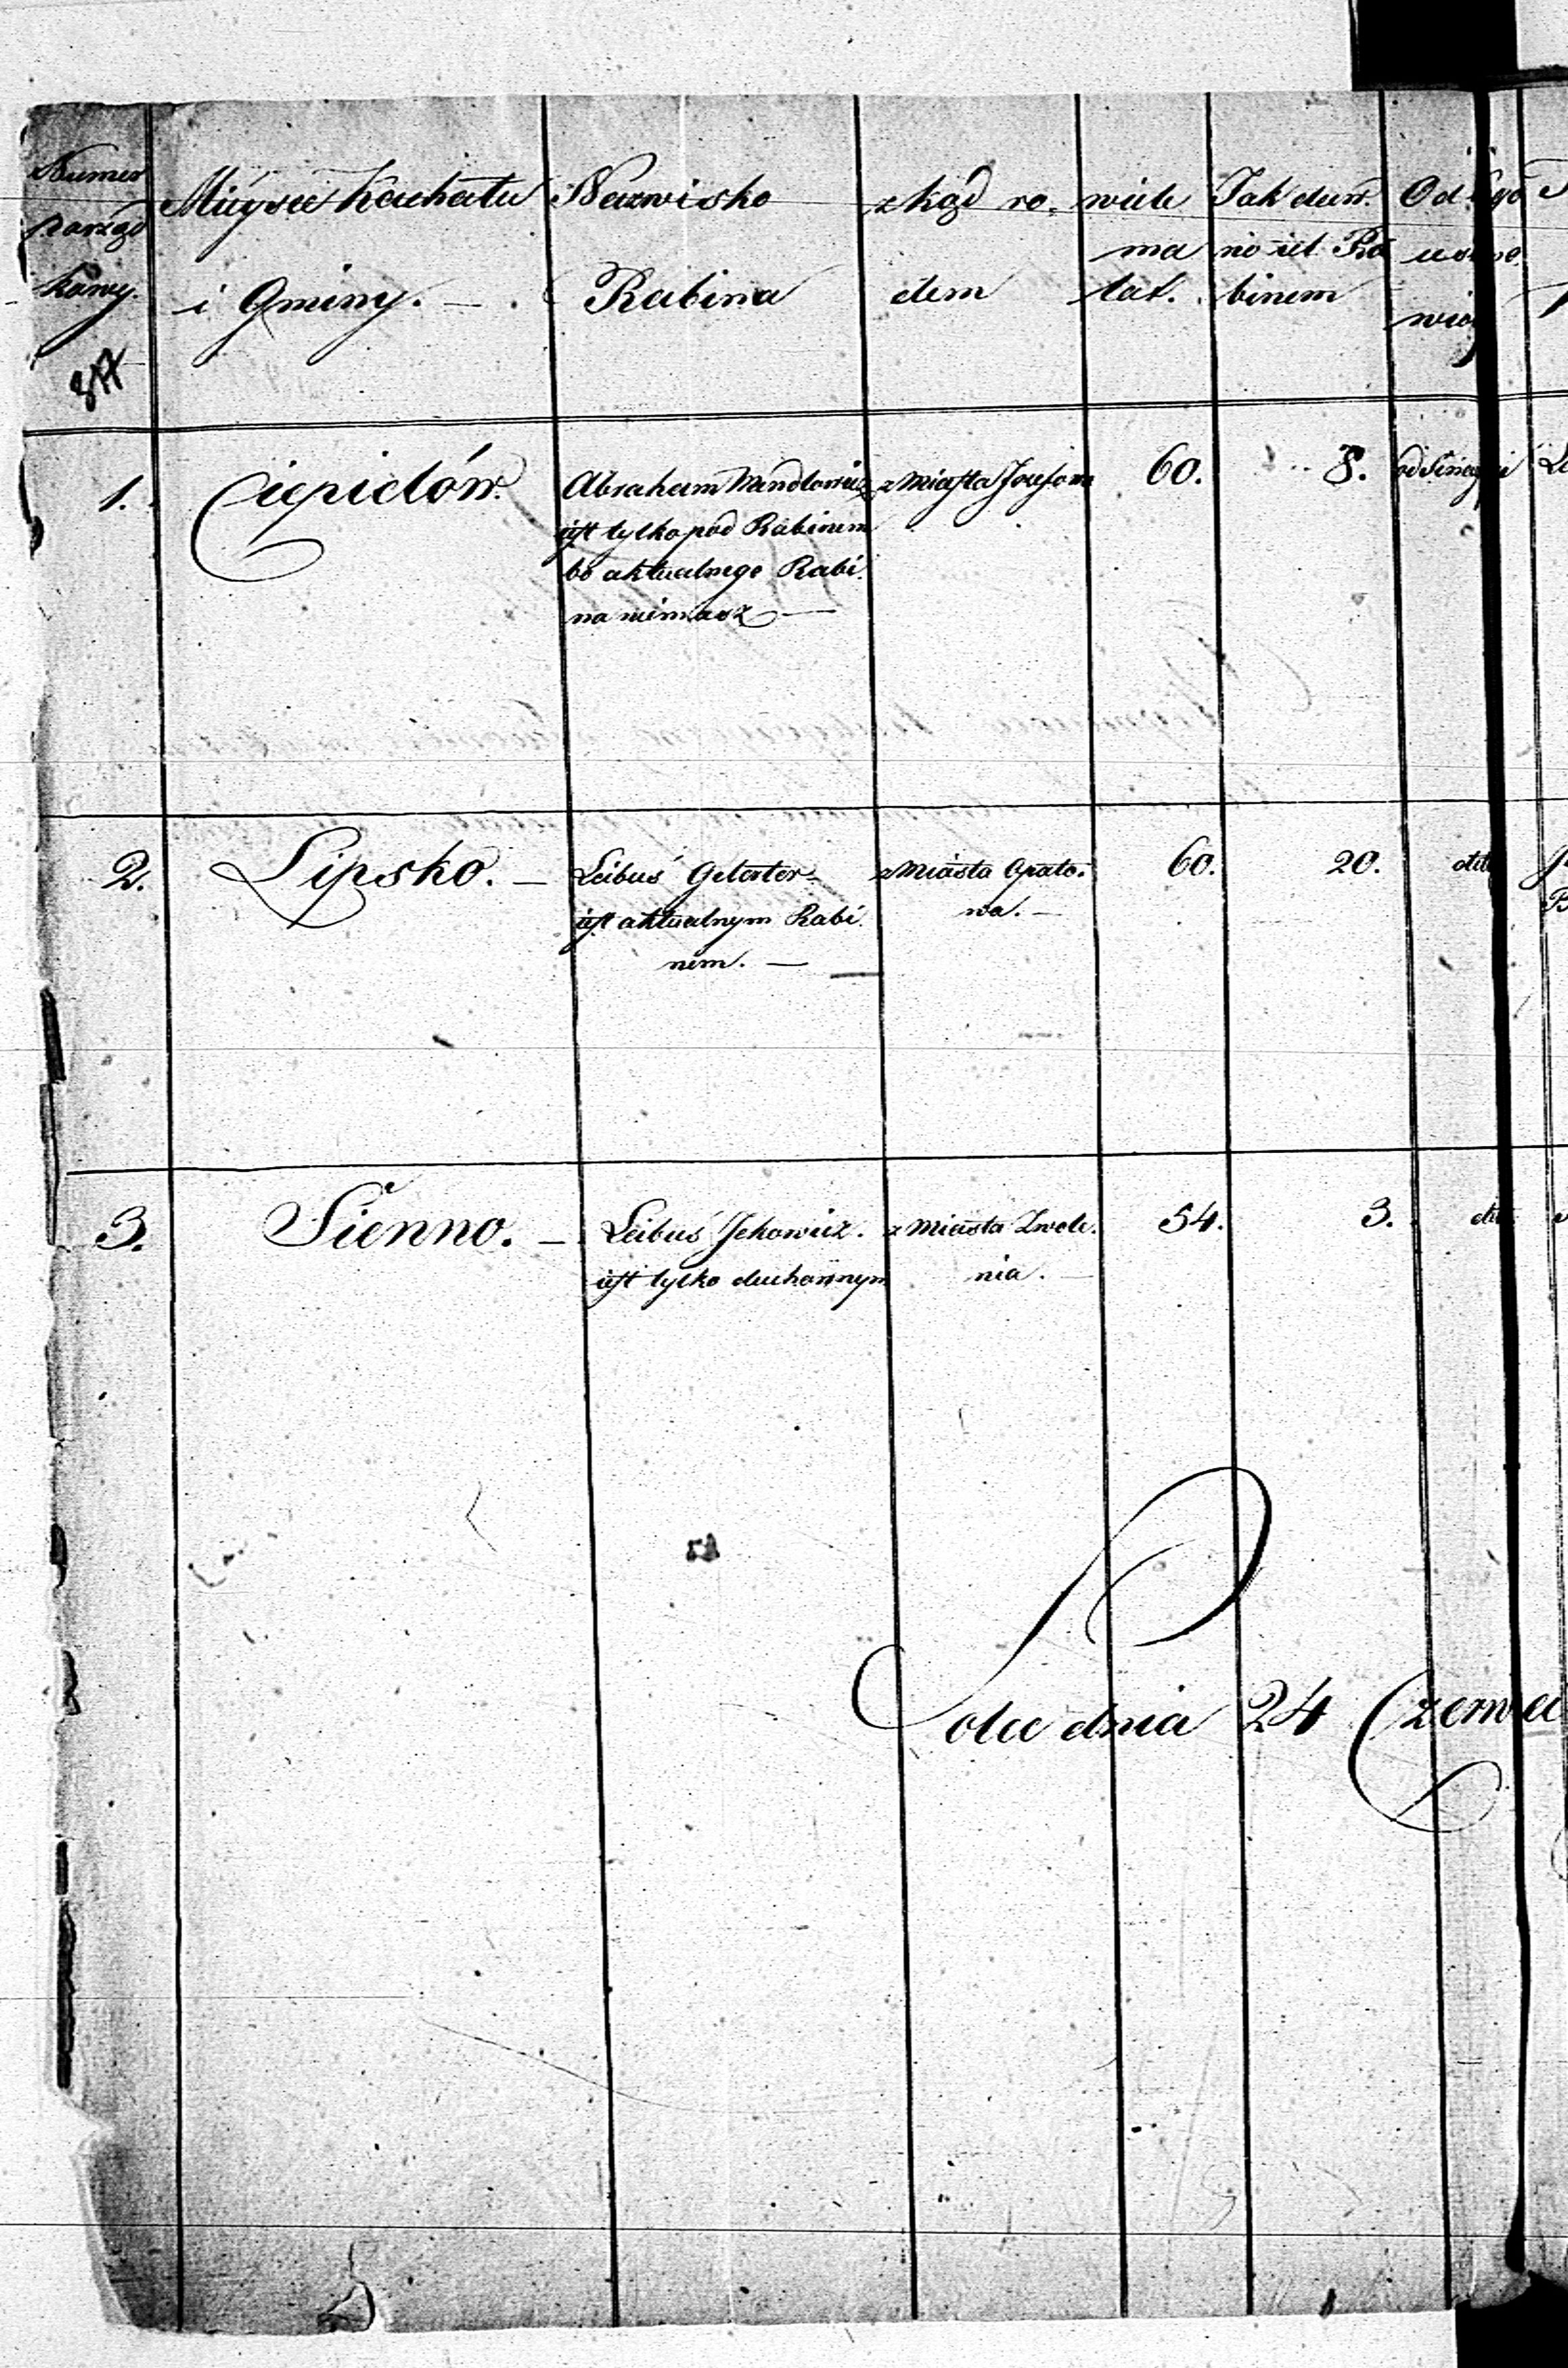 Numer porząd kowy.
Mieysce Kachału i Gminy. —
Nazwisko Rabina
zkąd ro, dem
wiele ma lat.
Jak daw. no jest Ra binem
Od
317
1.
Ciepielów.
Abraham
jest tylko pod Rabinem
bo aktualnego Rabi.
na niemasz —
z Miasta Josefowa
60.
8.
2.
Lipsko. —
Leibuś
jest aktualnym Rabi.
nem. —
z Miasta Opato.
wa. —
60.
20.
3.
Sienno. —
Leibuś Jckowicz.
jest tylko duchownym
z Miasta Zwole.
nia. —
54.
3.
Solec dnia 24 Czerwca